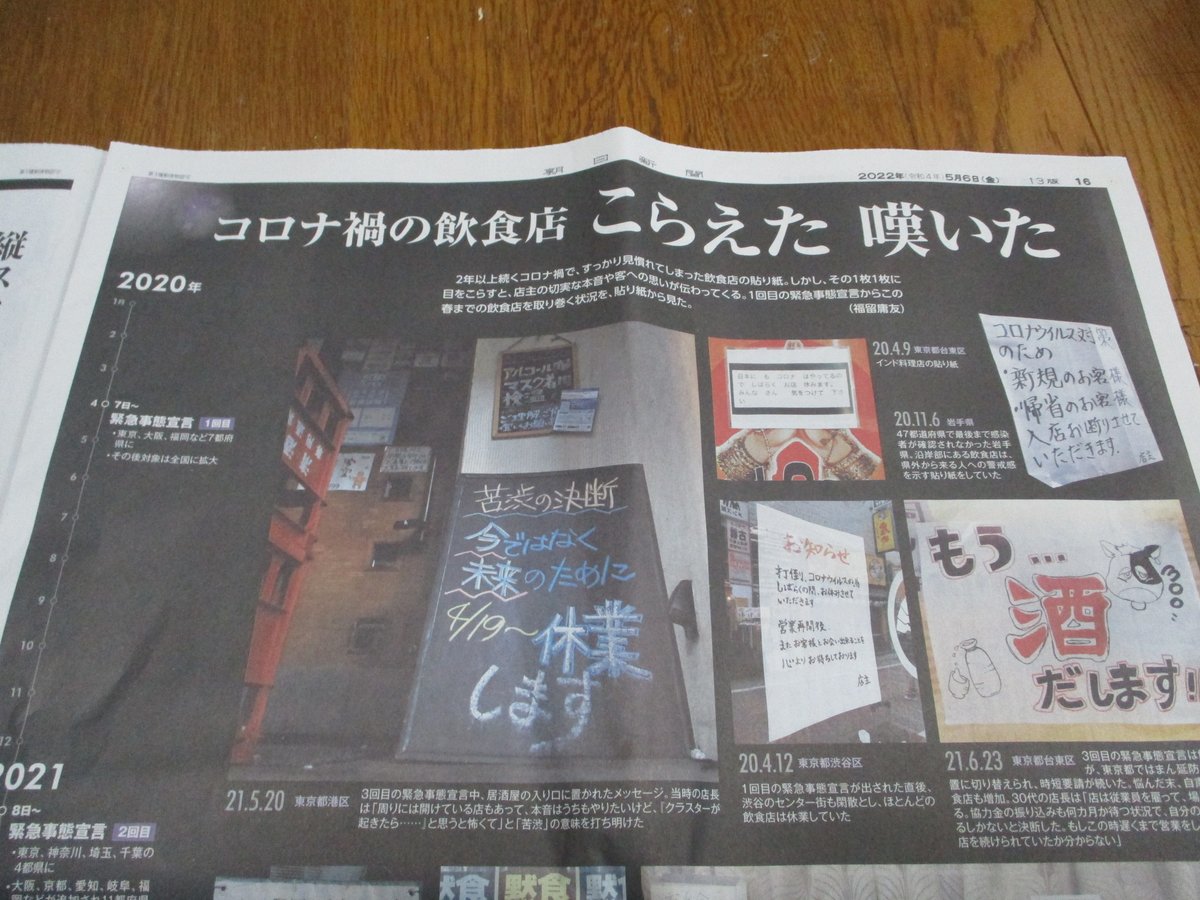 朝日新聞
2022年(令和4年)5月6日(金)
13版
16
コロナ禍の飲食店 こらえた 嘆いた
2年以上続くコロナ禍で、すっかり見慣れてしまった飲食店の貼り紙。しかし、その1枚1枚に
目をこらすと、店主の切実な本音や客への思いが伝わってくる。1回目の緊急事態宣言からこの
春までの飲食店を取り巻く状況を、貼り紙から見た。
(福留庸友)
2020年
1月
2
3
4
7日〜
緊急事態宣言 1回目
・東京、大阪、福岡など7都府
県に
・その後対象は全国に拡大
5
6
7
8
9
10
11
12
2021
8日〜
緊急事態宣言 2回目
・東京、神奈川、埼玉、千葉の
4都県に
・大阪、京都、愛知、岐阜、福
アルコール
マスク着用
検温
苦渋の決断
今ではなく
未来のために
4/19〜休業
します
21.5.20 東京都港区
3回目の緊急事態宣言中、居酒屋の入り口に置かれたメッセージ。当時の店長
は「周りには開けている店もあって、本音はうちもやりたいけど、「クラスターが
起きたら……」と思うと怖くて」と「苦渋」の意味を打ち明けた
日本に も コロナ はやってるの
で しばらく お店 休みます。
みんな さん 気をつけて 下さ
い
20.4.9 東京都台東区
インド料理店の貼り紙
20.11.6 岩手県
47都道府県で最後まで感染
者が確認されなかった岩手
県。沿岸部にある飲食店は、
県外から来る人への警戒感
を示す貼り紙をしていた
コロナウイルス対策
のため
・新規のお客様
・帰省のお客様
入店お断りさせて
いただきます。
店主
お知らせ
しばらくの間、お休みさせて
いただきます
営業再開後
またお客様とお会い出来ることを
心よりお待ちしております
店主
20.4.12 東京都渋谷区
1回目の緊急事態宣言が出された直後、
渋谷のセンター街も閑散とし、ほとんどの
飲食店は休業していた
もう…
酒
だします!!
21.6.23 東京都台東区
3回目の緊急事態宣言は
が、東京都ではまん延防
置に切り替えられ、時短要請が続いた。悩んだ末、自
食店も増加。30代の店長は「店は従業員を雇って、場
る。協力金の振り込みも何カ月か待つ状況で、自分の
るしかないと決断した。もしこの時遅くまで営業をし
店を続けられていたか分からない」
黙食
黙食